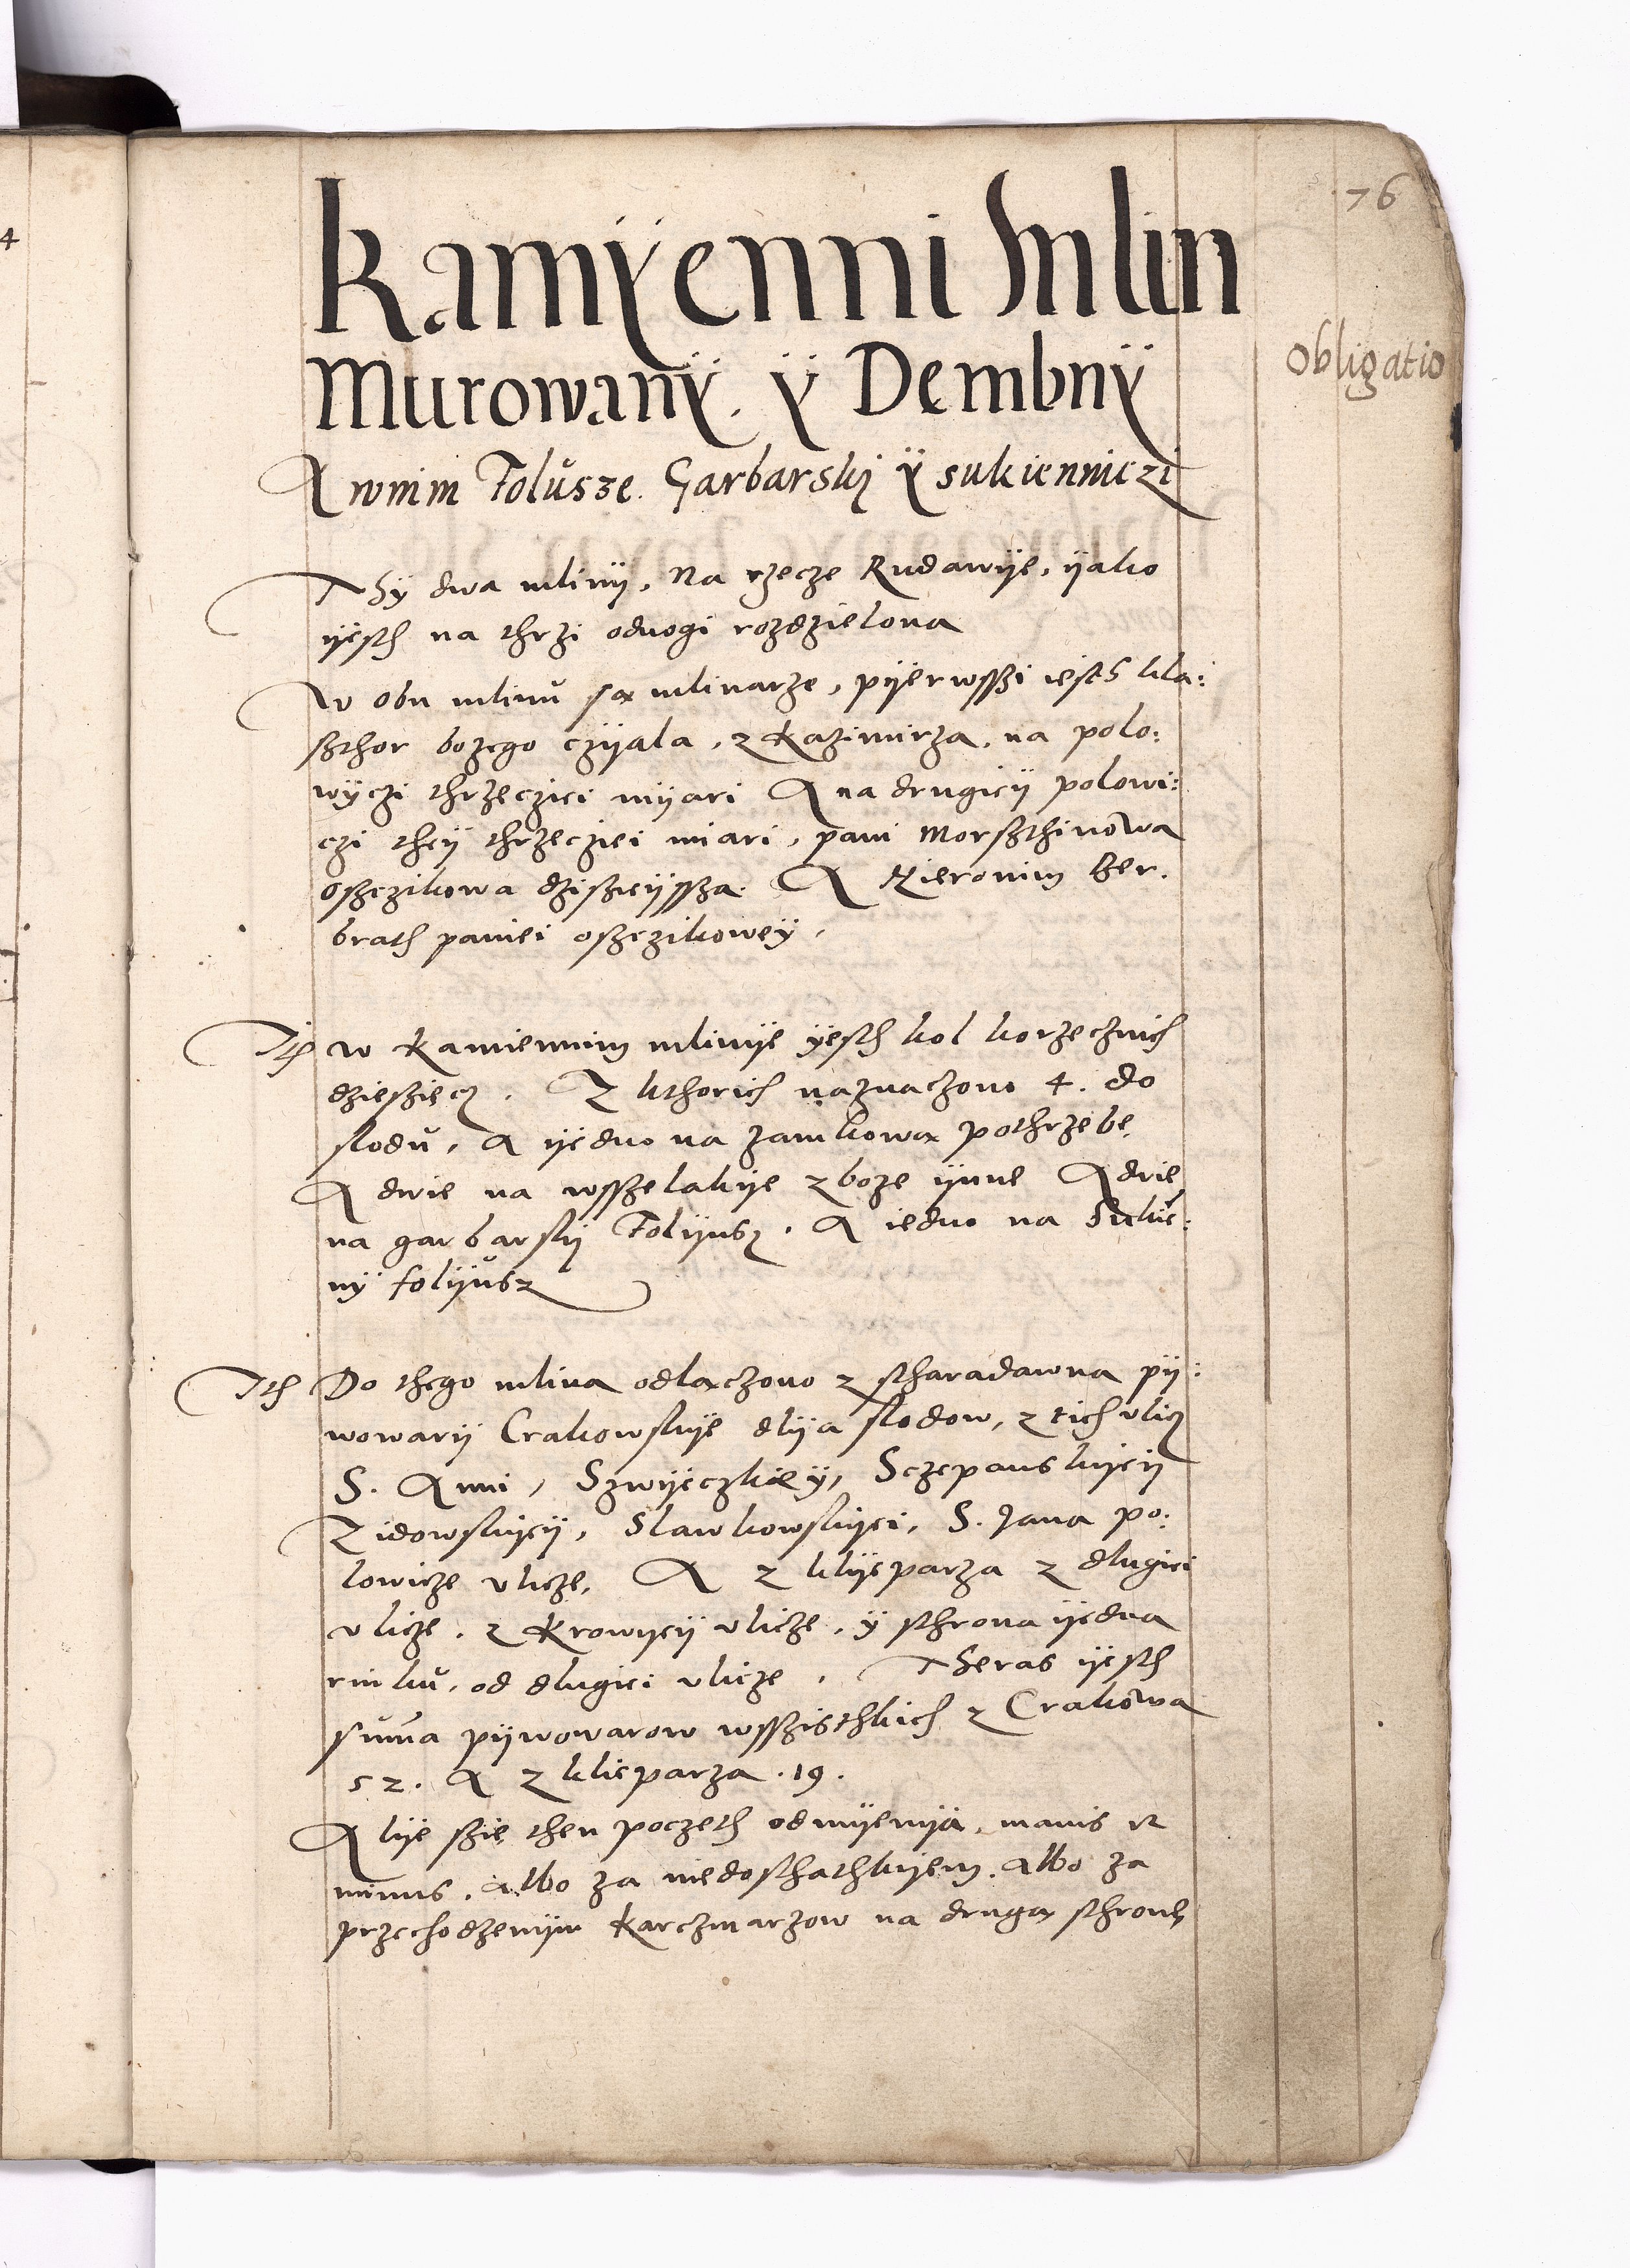 76
Kamÿenni Mlin
Murowanÿ. ÿ Dembnÿ
obligatio
A wnim Folusze. Garbarskj ÿ sukienniczi
Thÿ dwa mlinÿ, Na rzecze Rudawÿe, ÿako
ÿesth na thrzi odnogi rozdzielona
W obu mlinu są mlinarze, pÿerwsszi iesth kla:
szthor bozego czÿala, z Kazimirza, na polo:
wÿczi thrzecziei mÿari A na drugieÿ polowi:
czi theÿ thrzecziei miari, pani Morszthinowa
oszczikowa dziszieÿssza. A Hieronim Ber.
brath paniei oszczikoweÿ,
Ith w Kamiennim mlinÿe ÿesth kol korzecznich
dziesziecz. Z kthorich naznaczono 4. do
slodu, A ÿedno na zamkową pothrzebe.
A dwie na wsszelakÿe zboze ÿnne A dwie
na garbarskÿ Folÿusz. A iedno na Sukie:
nÿ folÿusz
Ith Do thego mlina odlączono z stharadawna pÿ:
wowarÿ Crakowskÿe dlÿa slodow, z tich vlicz
S. Anni, Szwÿeczkieÿ, Sczepanskÿeÿ
Zidowskÿeÿ, Slawkowskÿei, S. Jana po:
lowicze vlicze, A z klÿeparza z dlugiei
vlicze. z Krowÿeÿ vlicze. ÿ sthrona ÿedna
rinku, od dlugiei vlicze. Theras ÿesth
suma pÿwowarow wsszisthkich z Crakowa
52. A z klieparza .19.
A lÿe szie then poczeth odmÿenÿa, mauis et
minus. Albo za niedosthathkÿem. Albo za
przechodzenÿm Karczmarzow na drugą sthronę